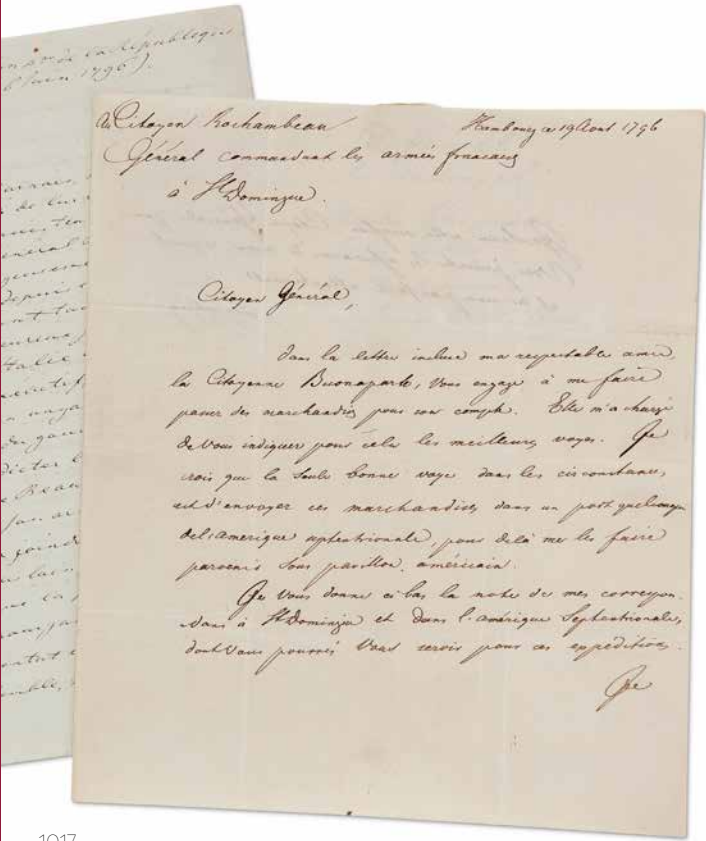 de la République
Juin 1796).
Au Citoyen Rochambeau
Hambourg ce 19 Aout 1796
Général commandant les armées francaises
à St Domingue.
Citoyen Général,
dans la lettre incluse ma respectable amie,
la Citoyenne Buonaparte, vous engage à me faire
passer des marchandises pour son compte. Elle m'a chargé
de vous indiquer pour cela les meilleures voyes. Je
crois que la seule bonne voye dans les circonstances,
est d'envoyer ces marchandises dans un port quelconque
de l'amerique septentrionale, pour delà me les faire
parvenir sous pavillon américain.
Je vous donne ci bas la note de mes correspon-
dans à St Domingue et dans l'amérique Septentrionale,
dont vous pourrés vous servir pour ces expéditions.
Je
1017